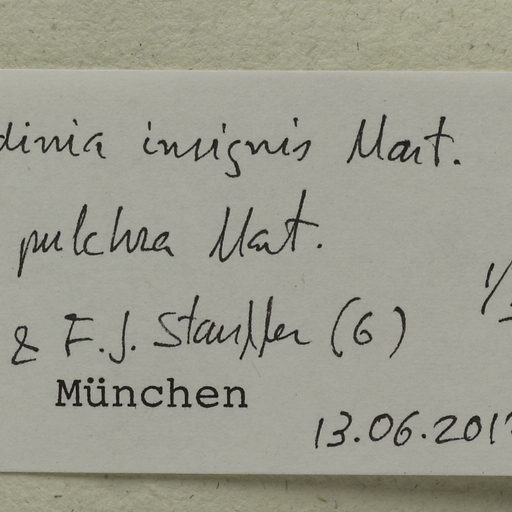 dinia insignis Mart.
pulchra Mart.
1/
& F.J. Stauffer (G)
München
13.06.201